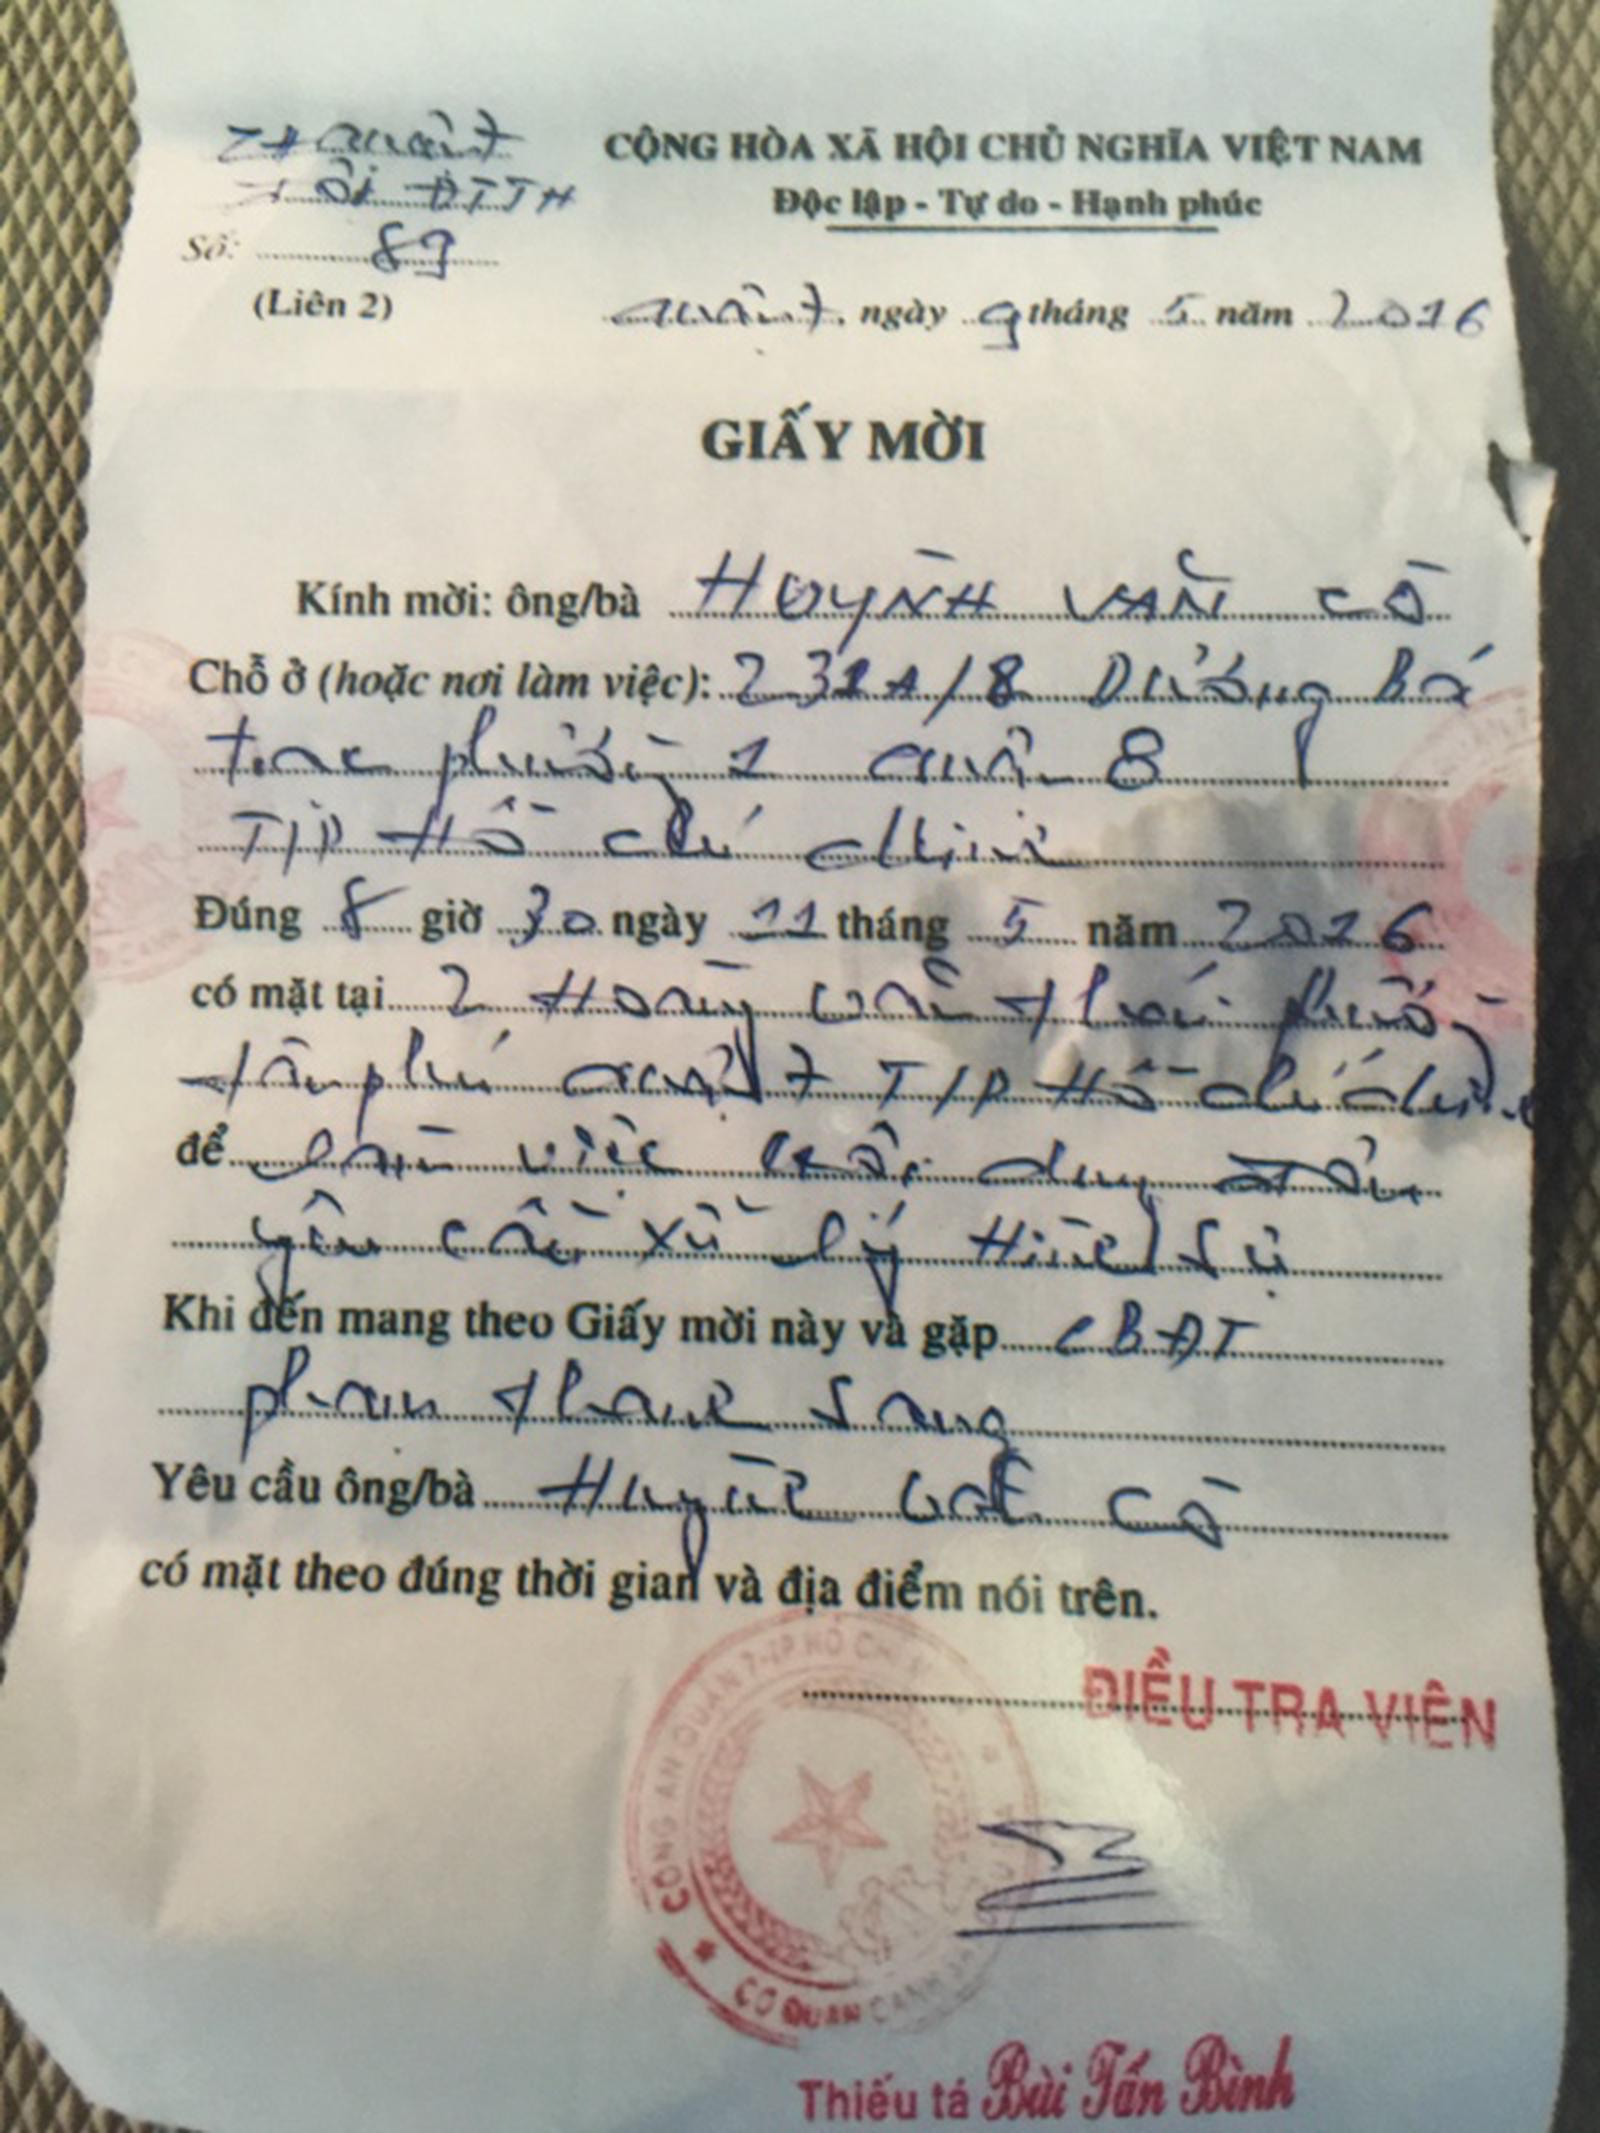 CA Quận 7
CỘNG HÒA XÃ HỘI CHỦ NGHĨA VIỆT NAM
Đội ĐTTH
Độc lập - Tự do - Hạnh phúc
Số: 89
(Liên 2)
Quận 7, ngày 9 tháng 5 năm 2016
GIẤY MỜI
Kính mời: ông/bà HUỲNH VĂN CÒ
Chỗ ở (hoặc nơi làm việc): 231A/8 Dương Bá
trạc phường 1 quận 8
T/P Hồ chí Minh
Đúng 8 giờ 30 ngày 11 tháng 5 năm 2016
có mặt tại 2 Hoàng văn thái phường
tân phú quận 7 T/P Hồ chí Minh
để Làm việc nội dung đơn
yêu cầu xử lý Hình sự
Khi đến mang theo Giấy mời này và gặp CBĐT
phan thanh Sang
Yêu cầu ông/bà Huỳnh văn Cò
có mặt theo đúng thời gian và địa điểm nói trên.
ĐIỀU TRA VIÊN
CÔNG AN QUẬN 7-TP HỒ CHÍ
CƠ QUAN CẢNH
Thiếu tá Bùi Tấn Bình